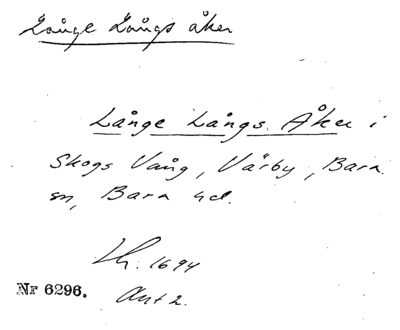 Långe Långs åker
Långe Långs Åker i
Skogs Vång, Värby, Bara
sn, Bara hd.
Lh. 1694
Nr 6296.
Ant 2.